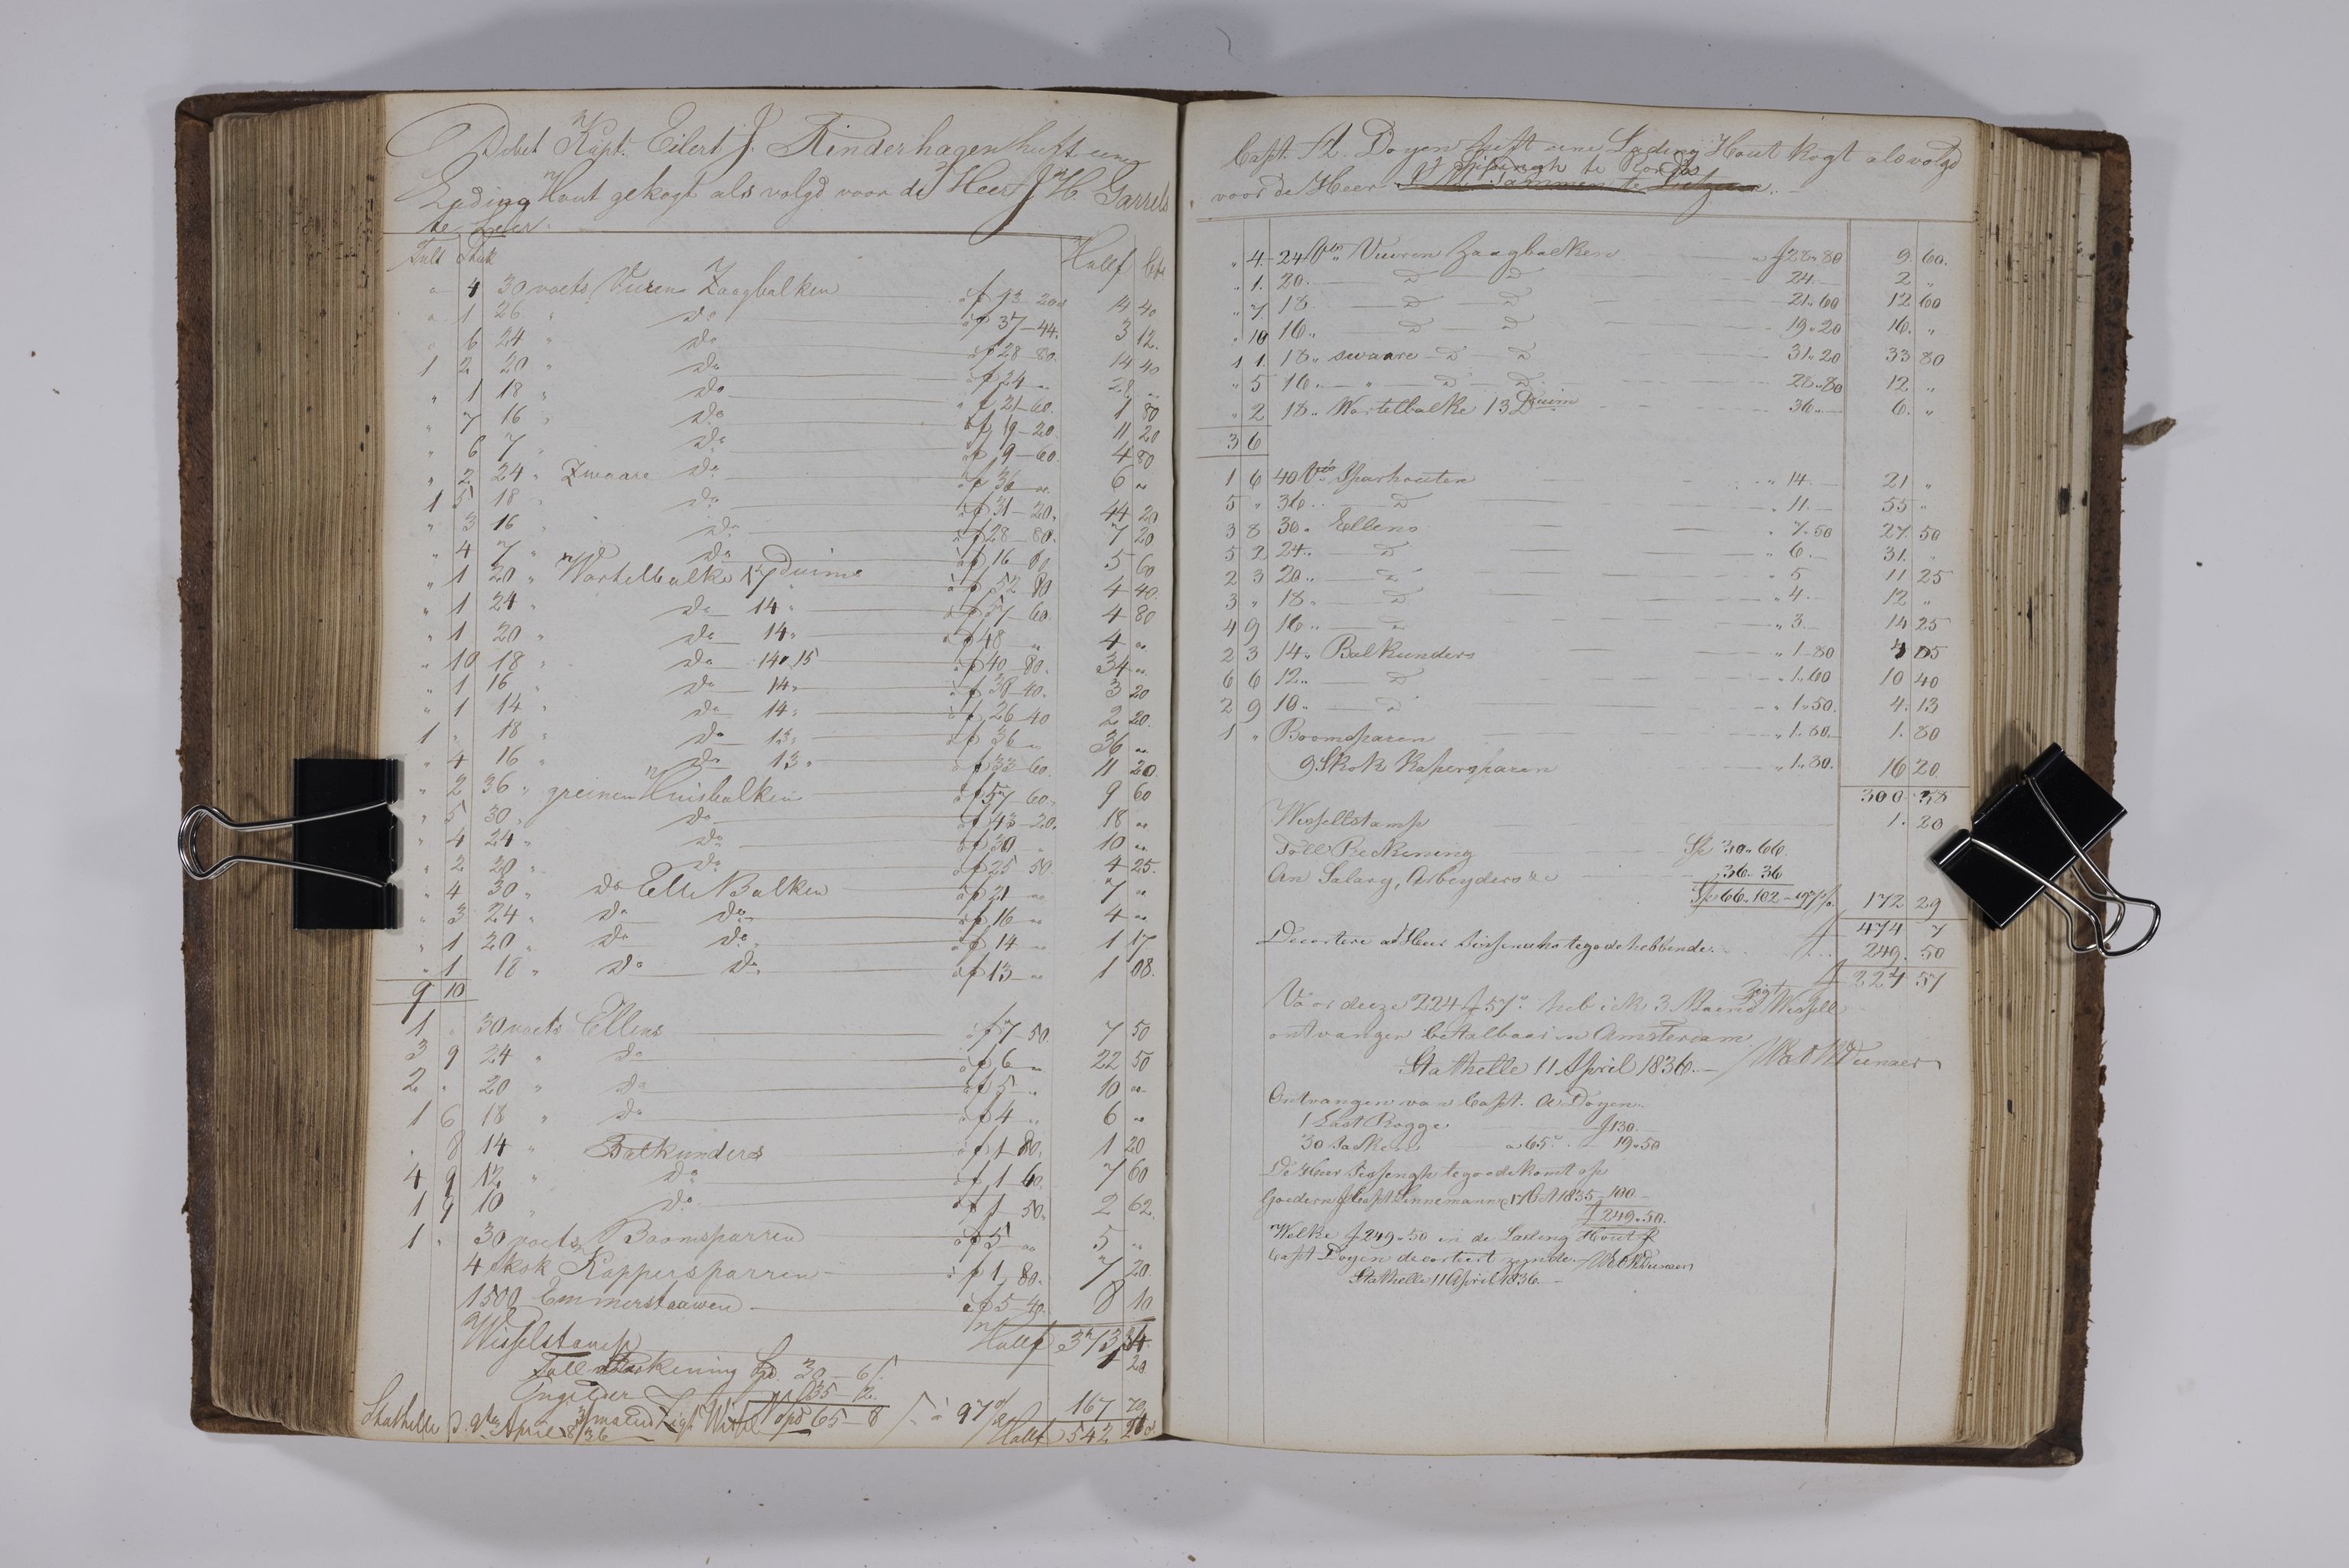 Debet Kapt. Eilert J. Rinderhagen heeft eine
Lading Hout gekogt als volgd voor de Heer J. H. Garrels
te Leer.
Tult Stuk Hollf Cts
" 4 30 voets Vuren Zaagbalken à f 43-20 14 40
" 1 26 " do à f 37-44. 3 12.
" 6 24 " do à f 28-80. 14 40
1 2 20 " do à f 24-" 28 "
" 1 18 " do à f 21-60. 1 80
" 7 16 " do à f 19-20. 11 20
" 6 7 " do à f 9-60. 4 80
" 2 24 " Zwaare do à f 36-" 6 "
1 5 18 " do à f 31-20. 44 20
" 3 16 " do à f 28-80. 7 20
" 4 7 " do à f 16 80 5 60
" 1 20 " Wortelbalke 17 duims à f 52 80 4 40.
" 1 24 " do 14 " à f 57-60. 4 80
" 1 20 " do 14 " à f 48 " 4 "
" 10 18 " do 14 à 15 à f 40-80. 34 "
" 1 16 " do 14 " à f 38-40. 3 20
" 1 14 " do 14 " à f 26-40 2 20.
1 " 18 " do 13 " à f 36 " 36 "
" 4 16 " do 13 " à f 33-60. 11 20.
" 2 36 " greinen Huisbalken à f 57-60. 9 60
" 5 30 " do à f 43-20. 18 "
" 4 24 " do à f 30 " 10 "
" 2 20 " do à f 25 50. 4 25.
" 4 30 " do Elle Balken à f 21 " 7 "
" 3 24 " do do à f 16 " 4 "
" 1 20 " do do à f 14 " 1 17
" 1 18 " do do à f 13 " 1 08.
9 10
1 " 30 voets Ellens à f 7-50. 7 50
3 9 24 " do à f 6 " 22 50
2 " 20 " do à f 5 " 10 "
1 6 18 " do à f 4 " 6 "
" 8 14 " Balkunders à f 1 80. 1 20
4 9 12 " do à f 1 60. 7 60
1 9 10 " do à f 1 50. 2 62.
1 " 30 voets Boomsparren à f 5 " 5 "
4 Skok Kappersparren à f 1, 80. 7 20.
1500 Emmerstaawen à f 5-40. 8 10
Hollf 373 34
Wisselstamp 1 20
Toll Rekening Sp. 30-6
35-2.
Spd 65-8 à 97 167 70
Stathelle d. 9te April 1836 3 maend Zigt Wissel Hollf 542 24
Capt. A. Doyen heeft eine Lading Hout kogt als volgd
voor de Heer te
" 4 24 Vts Vuuren Zaagbalken " f 28"80 9. 60.
" 1. 20. D D 24 2 "
" 7. 18 D D 21"60 12 60
" 10 16 " D D 19"20 16. "
1 1. 18 " swaare D D 31"20 33 80
" 5 16 " " D D 28"80 12 "
" 2 18 " Wortelbalke 13 Duim 36"- 6. "
3 6
1 6 40 Vts Sparhouten " 14. 21 "
5 " 36 " D " 11. 55 "
3 8 30 " Ellens " 7"50 27. 50
5 2 24 " D " 6.- 31. "
2 3 20 " D " 5 11 25
3 " 18 " D " 4.- 12 "
4 9 16 " D " 3.- 14 25
2 3 14 " Balkunders " 1-80 4 05
6 6 12 " D " 1"60 10 40
2 9 10 " D " 1"50. 4. 13
1 " Boomsparen " 1.80.- 1. 80
9 Skok Kapersparen " 1"80. 16 20
300 58
Wissellstamp 1. 20
Toll Rekening Sp 30"66
An Salary, Arbeyders &c 36. 36
Sp 66. 102 - 97 172 29
f 474 7
Decortere a d Heer tegodehebbende 249. 50
f 224 57
Voor deeze 224 f 57 heb ick 3 Maend Zigt Wissell
ontvangen betalbaar in Amsterdam
Stathelle 11 April 1836.-
Ontvangen van Capt. A Doyen.
1 Last Rogge f 130.-
30 à 65 19"50
De Heer tegoedekomt op
Goedern pr Capt Linnemann 1835 - 100 -
f 249"50.
Welke f 249"50 in de Lading Hout pr
Capt Doyen decorteert zynde.
Stathelle 11 April 1836.-